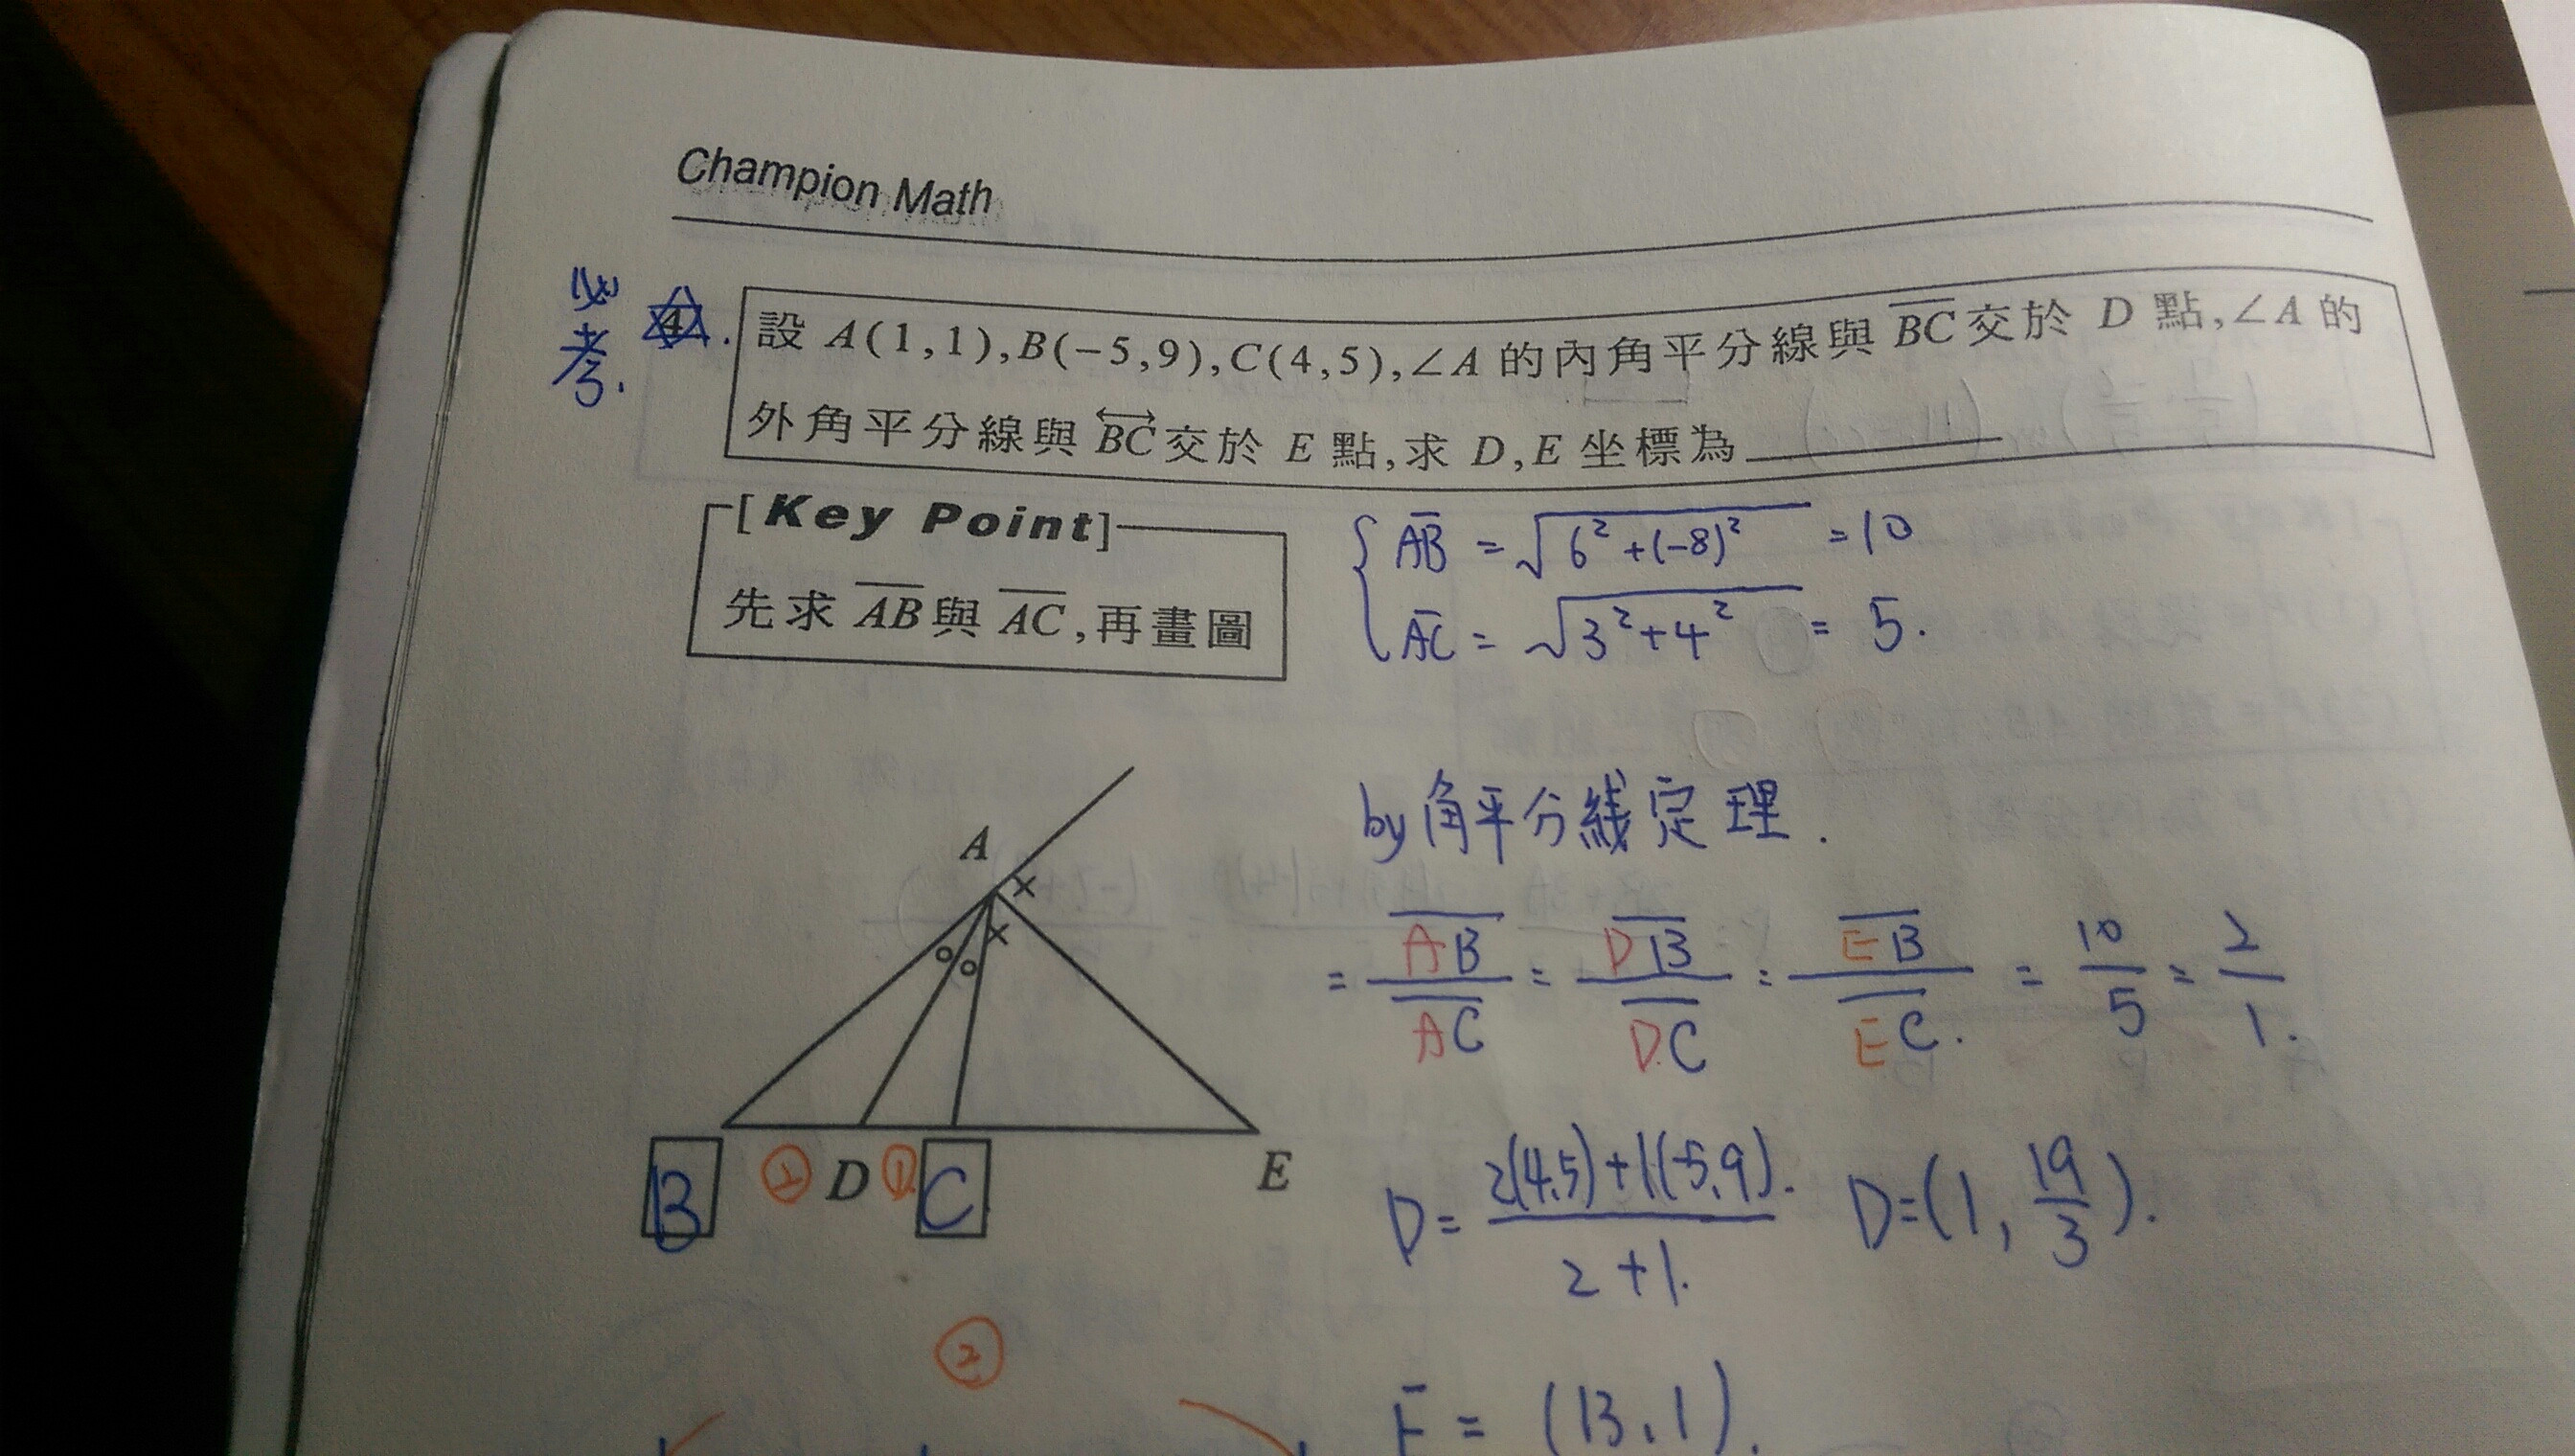 Champion Math
必考.
4.
設 A(1,1),B(-5,9),C(4,5),∠A 的內角平分線與 \overline{BC} 交於 D 點,∠A 的
外角平分線與 \overleftrightarrow{BC} 交於 E 點,求 D,E 坐標為
[Key Point]
先求 \overline{AB} 與 \overline{AC},再畫圖
\overline{AB} = √(6²+(-8)²) = 10
\overline{AC} = √(3²+4²) = 5.
by 角平分綫定理.
= \overline{AB}/\overline{AC} = \overline{DB}/\overline{DC} = \overline{EB}/\overline{EC}. = 10/5 = 2/1.
A
× ×
B ② D ① C E
D = (2(4,5)+1(-5,9))./(2+1.) D=(1, 19/3).
②
E = (13,1).